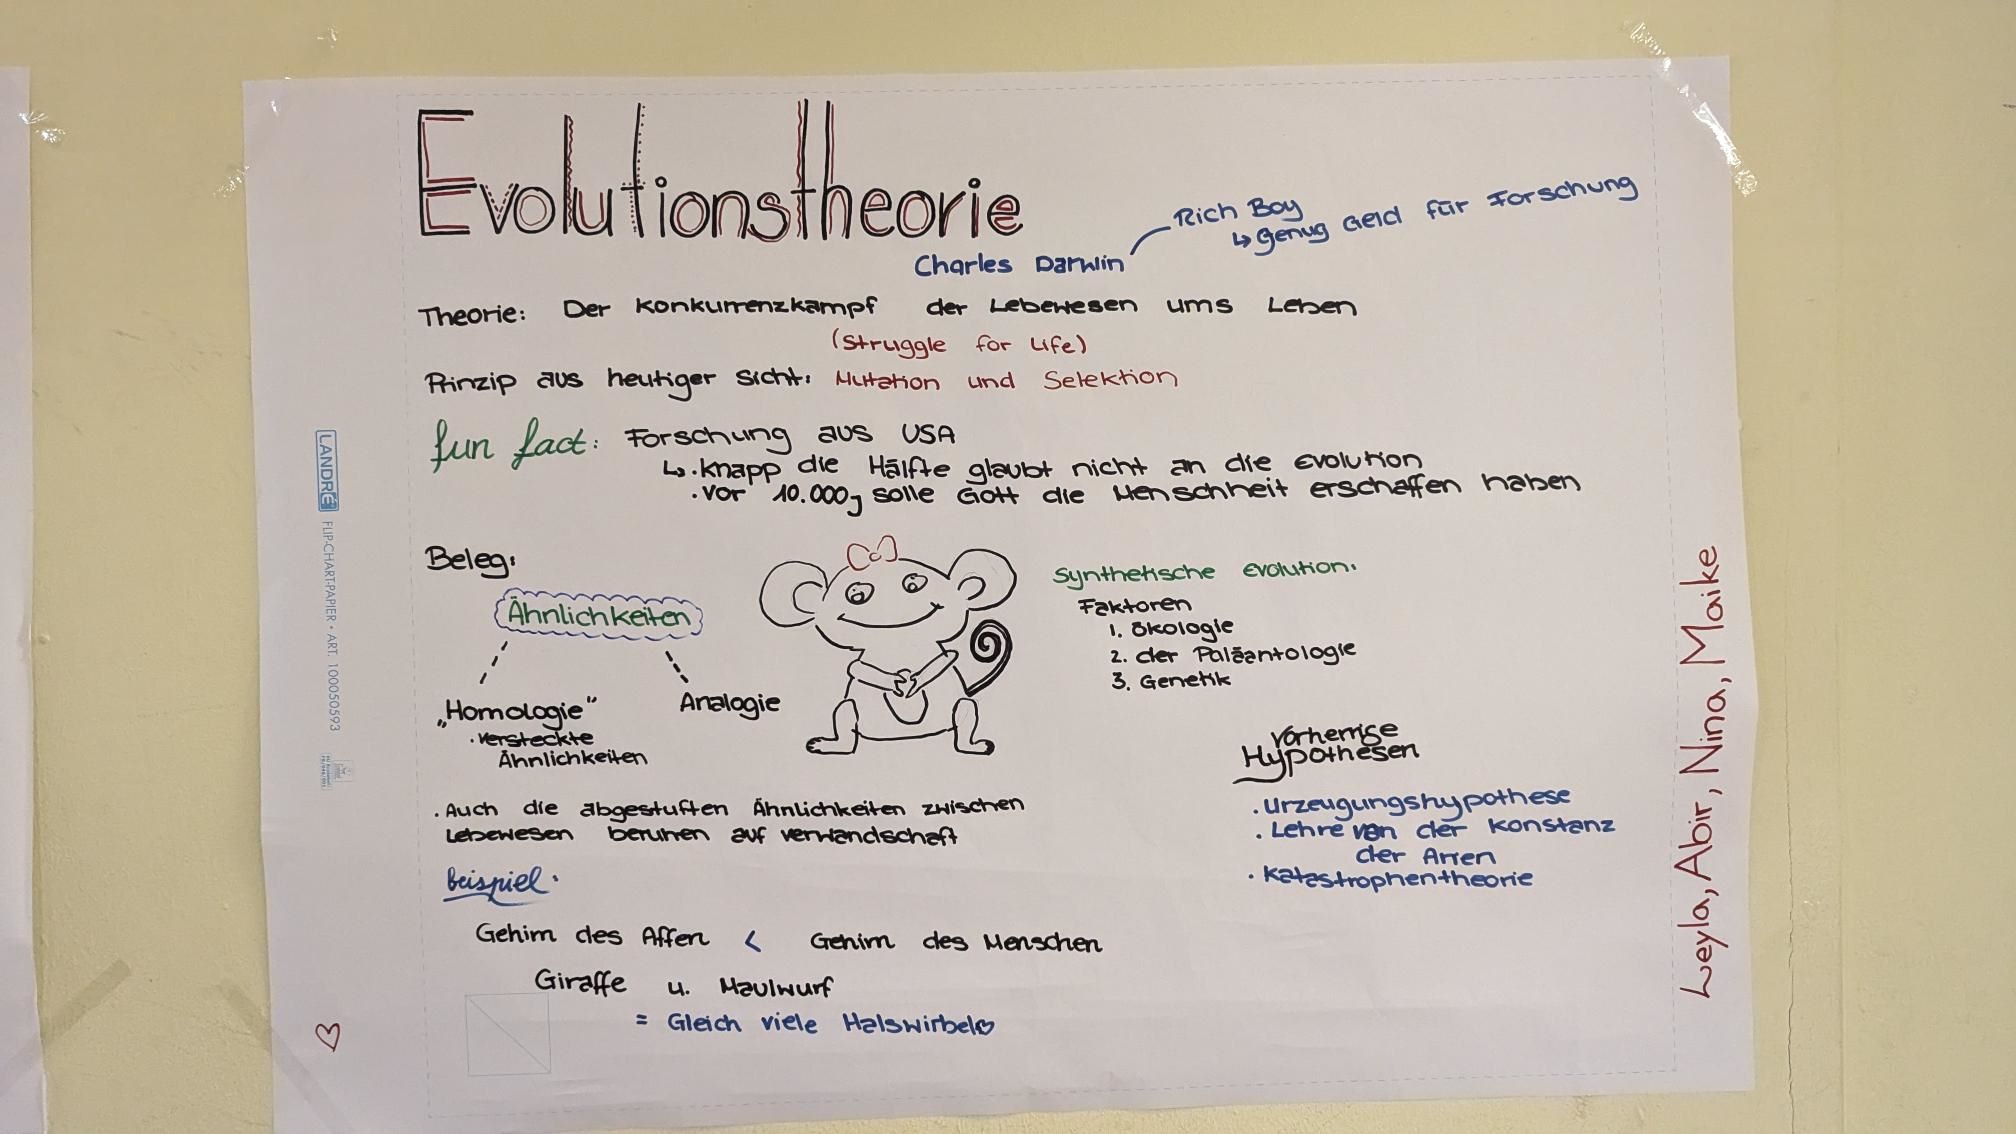 Evolutionstheorie
Charles Darwin
Rich Boy
↳ Genug Geld für Forschung
Theorie: Der Konkurrenzkampf der Lebewesen ums Leben
(Struggle for Life)
Prinzip aus heutiger Sicht: Mutation und Selektion
fun fact: Forschung aus USA
↳ • knapp die Hälfte glaubt nicht an die Evolution
• vor 10.000j solle Gott die Menschheit erschaffen haben
Beleg:
Ähnlichkeiten
„Homologie“
• versteckte
Ähnlichkeiten
Analogie
• Auch die abgestuften Ähnlichkeiten zwischen
Lebewesen beruhen auf verwandschaft
Beispiel:
Gehirn des Affen < Gehirn des Menschen
Giraffe u. Maulwurf
= Gleich viele Halswirbel♡
Synthetische Evolution:
Faktoren
1. Ökologie
2. der Paläantologie
3. Genetik
vorherrige
Hypothesen
• Urzeugungshypothese
• Lehre von der Konstanz
der Arten
• Katastrophentheorie
Leyla, Abir, Nina, Maike
LANDRÉ FLIP-CHART-PAPIER • ART. 100050593